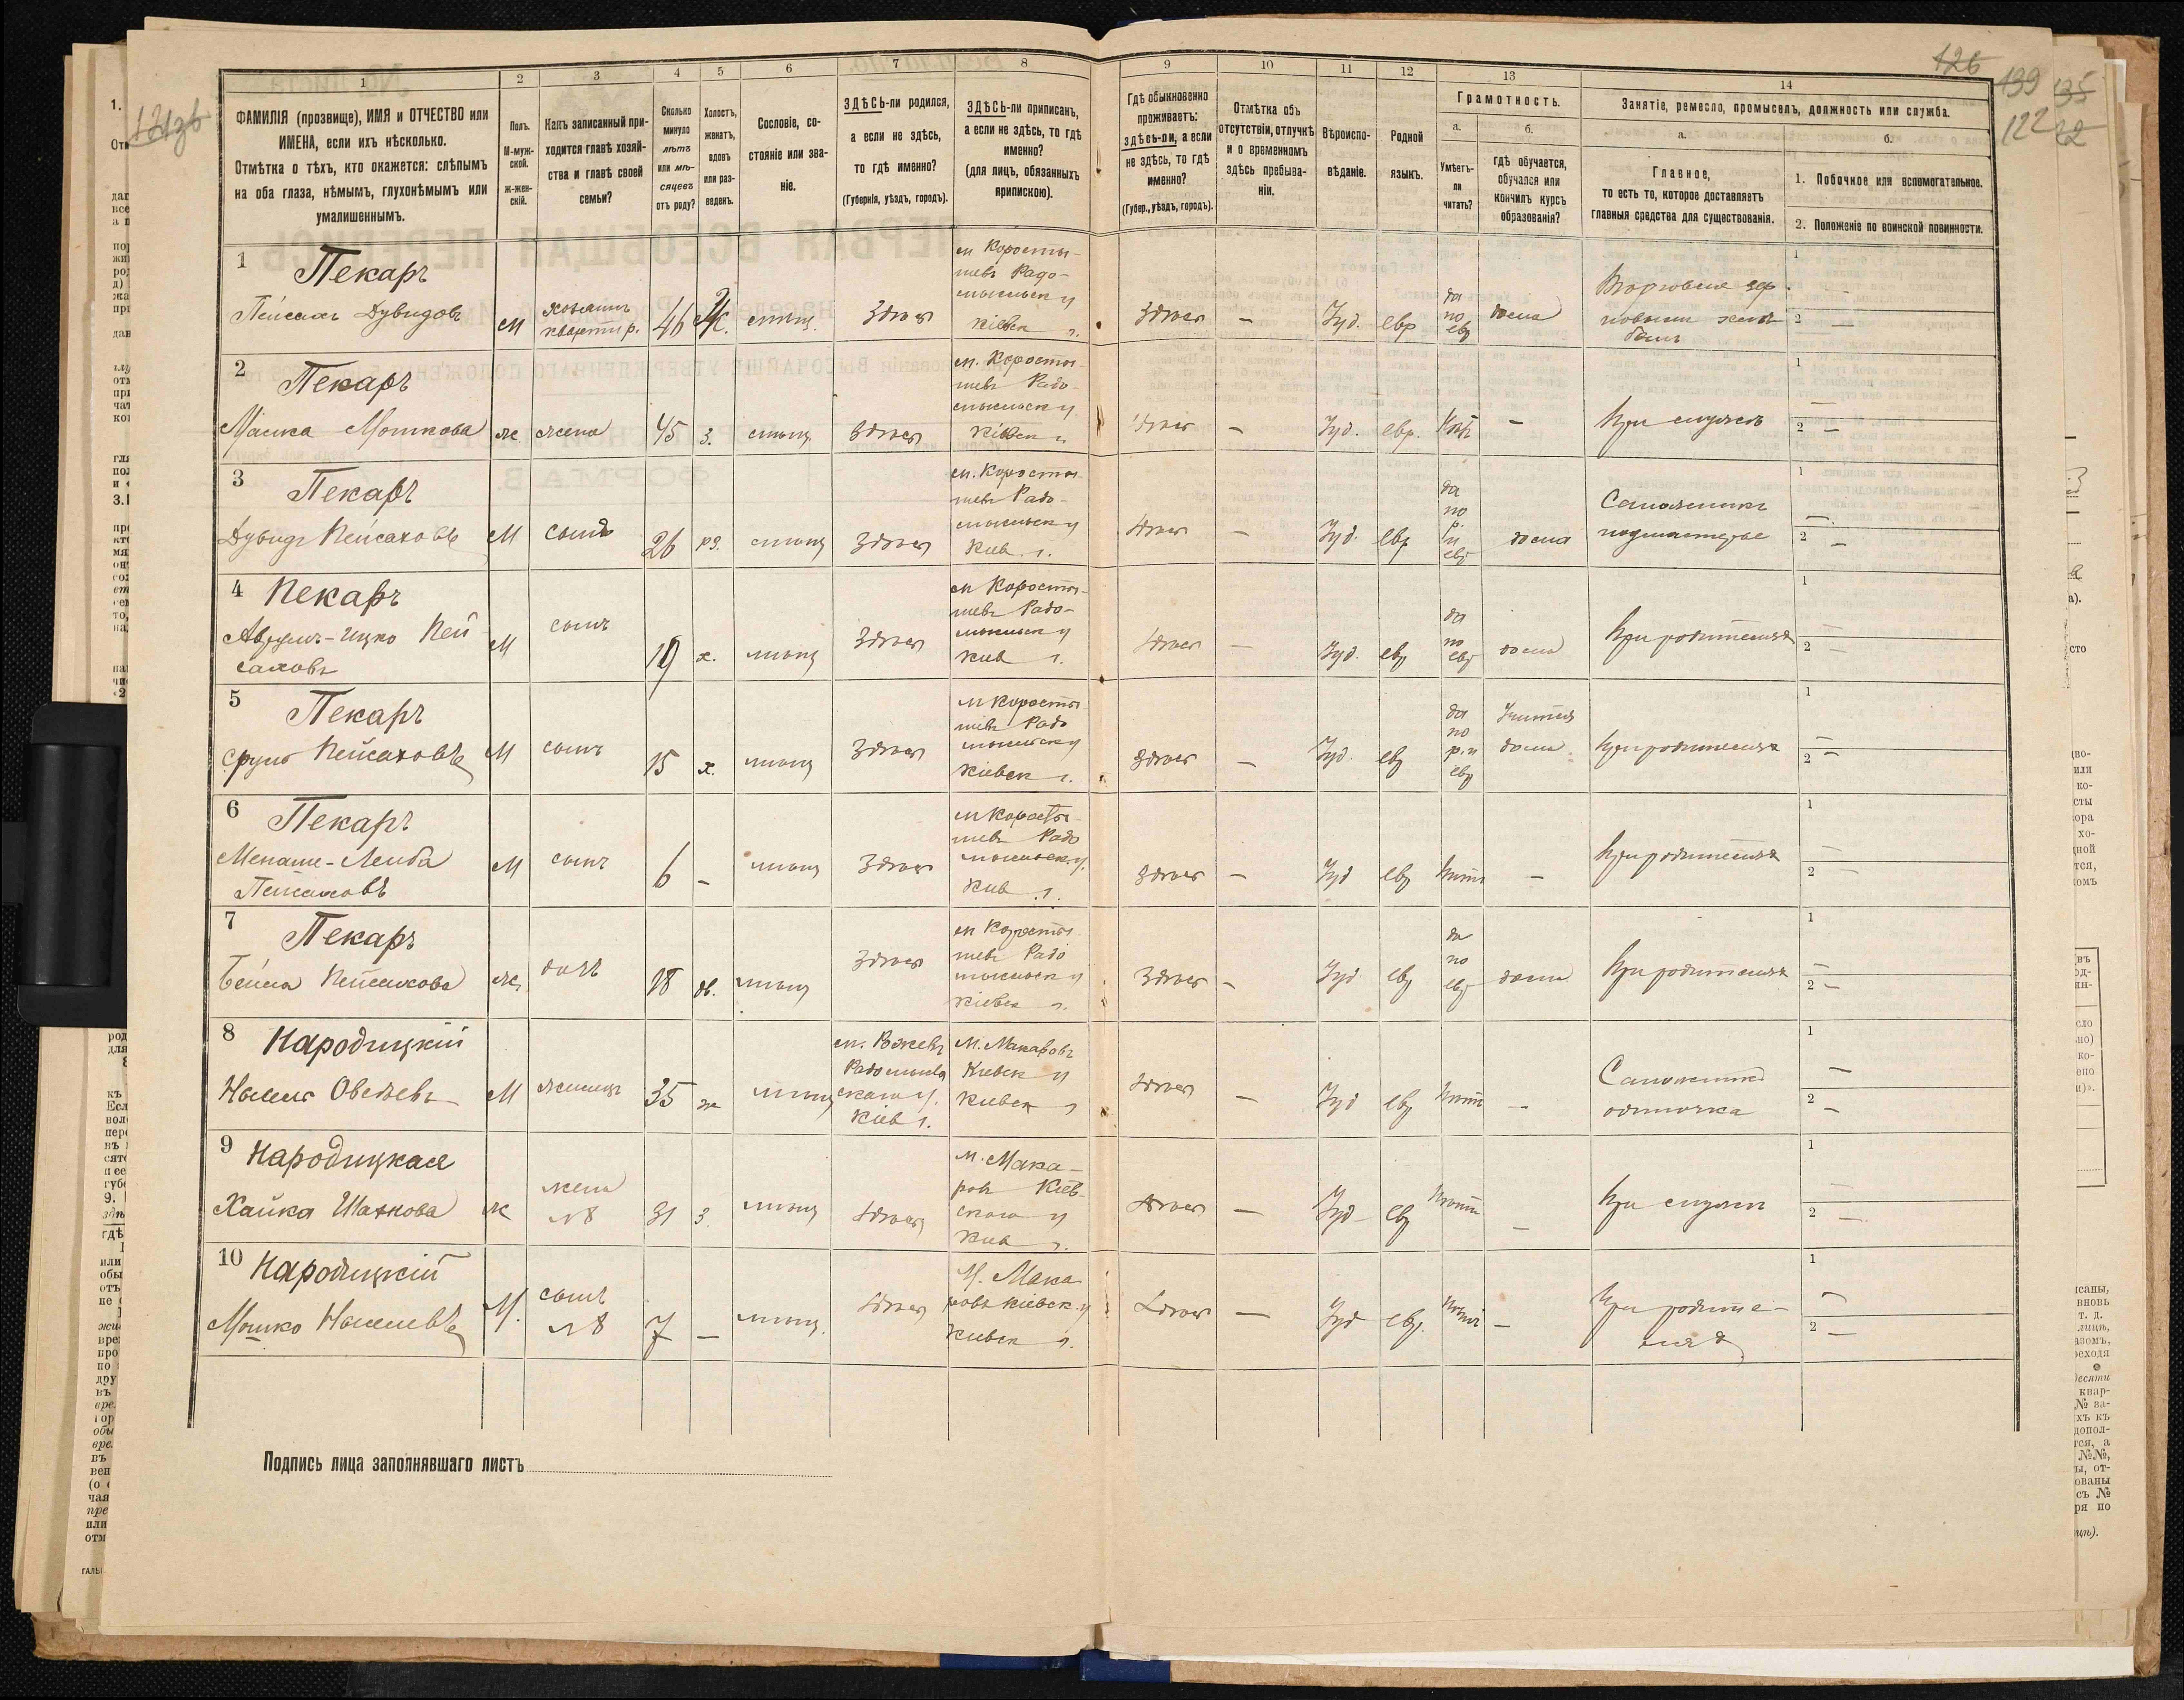 126
139 135
122 22
1
2
3
4
5
6
7
8
9
10
11
12
13
14
ФАМИЛІЯ (прозвище), ИМЯ и ОТЧЕСТВО или
ИМЕНА, если ихъ нѣсколько.
Отмѣтка о тѣхъ, кто окажется: слѣпымъ
на оба глаза, нѣмымъ, глухонѣмымъ или
умалишеннымъ.
Полъ.
М-муж-
ской.
ж-жен-
скій.
Какъ записанный при-
ходится главѣ хозяй-
ства и главѣ своей
семьи?
Сколько
минуло
лѣтъ
или мѣ-
сяцевъ
отъ роду?
Холостъ,
женатъ,
вдовъ
или раз-
веденъ.
Сословіе, со-
стояніе или зва-
ніе.
ЗДѢСЬ-ли родился,
а если не здѣсь,
то гдѣ именно?
(Губернія, уѣздъ, городъ).
ЗДѢСЬ-ли приписанъ,
а если не здѣсь, то гдѣ
именно?
(для лицъ, обязанныхъ
припискою).
Гдѣ обыкновенно
проживаетъ:
здѣсь-ли, а если
не здѣсь, то гдѣ
именно?
(Губер., уѣздъ, городъ).
Отмѣтка объ
отсутствіи, отлучкѣ
и о временномъ
здѣсь пребыва-
ніи.
Вѣроиспо-
вѣданіе.
Родной
языкъ.
Грамотность.
а.
Умѣетъ-
ли
читать?
б.
гдѣ обучается,
обучался или
кончилъ курсъ
образованія?
Занятіе, ремесло, промыселъ, должность или служба.
а.
Главное,
то есть то, которое доставляетъ
главныя средства для существованія.
б.
1. Побочное или вспомогательное.
2. Положеніе по воинской повинности.
1
Пекаръ
Пейсахъ Дувидовъ
М
хозяинъ
квартир.
46
Ж.
мѣщ.
Здѣсь
м Коросты-
шевъ Радо-
мысльск у
Кіевск г.
Здѣсь
—
Іуд.
евр
да
по
евр
дома
1 —
2 —
2
Пекаръ
Маска Мошкова
ж.
жена
45
з.
мѣщ
Здѣсь
м. Коросты-
шевъ Радо-
мысльск у
Кіевск г.
Здѣсь
—
Іуд.
евр.
Нѣтъ
—
При мужѣ
1 —
2 —
3
Пекаръ
Дувидъ Пейсаховъ
М
сынъ
26
рз.
мѣщ
Здѣсь
м. Коросты-
шевъ Радо-
мысльск у
Кіев г.
Здѣсь
—
Іуд.
евр
да
по
р.
и
евр
дома
Сапожникъ
подмастерье
1 —
2 —
4
Пекаръ
Аврумъ-Ицко Пей
саховъ
М
сынъ
19
х.
мѣщ
Здѣсь
м Коросты-
шевъ Радо-
мысльск у
Кіев г.
Здѣсь
—
Іуд.
евр
да
по
евр
дома
При родителяхъ
1 —
2 —
5
Пекаръ
Сруль Пейсаховъ
М
сынъ
15
х.
мѣщ
Здѣсь
м Коросты
шевъ Радо
мысльск у
Кіевск г.
Здѣсь
—
Іуд.
евр
да
по
р. и
евр
Учится
дома.
При родителяхъ
1 —
2 —
6
Пекаръ
Менаше-Лейба
Пейсаховъ
М
сынъ
6
—
мѣщ
Здѣсь
м Коросты-
шевъ Радо
мысльск. у.
Кіев г.
Здѣсь
—
Іуд
евр
Нѣтъ
—
При родителяхъ
1 —
2 —
7
Пекаръ
Бейла Пейсахова
ж.
дочь
18
дв.
мѣщ
Здѣсь
м Коросты
шевъ Радо
мысльск у
Кіевск г.
Здѣсь
—
Іуд
евр
да
по
евр
дома
При родителяхъ
1 —
2 —
8
Народицкій
М
жилецъ
35
ж
мѣщ
Радомысль
скаго у.
Кіев г.
М. Макаровъ
Кіевск у
Кіевск г
Здѣсь
—
Іуд
евр
Нѣтъ
—
Сапожникъ
одиночка
1 —
2 —
9
Народицкая
Хайка Шахнова
ж
жена
№ 8
31
з.
мѣщ
Здѣсь
м. Мака-
ровъ Кіев-
скаго у
Кіев г.
Здѣсь
—
Іуд
евр
Нѣтъ
—
При мужѣ
1 —
2 —
10
Народицкій
М.
сынъ
№ 8
7
—
мѣщ.
Здѣсь
М. Мака
ровъ Кіевск. у
Кіевск г.
Здѣсь
—
Іуд
евр.
Нѣтъ
—
При родите-
ляхъ
1 —
2 —
Подпись лица заполнявшаго листъ